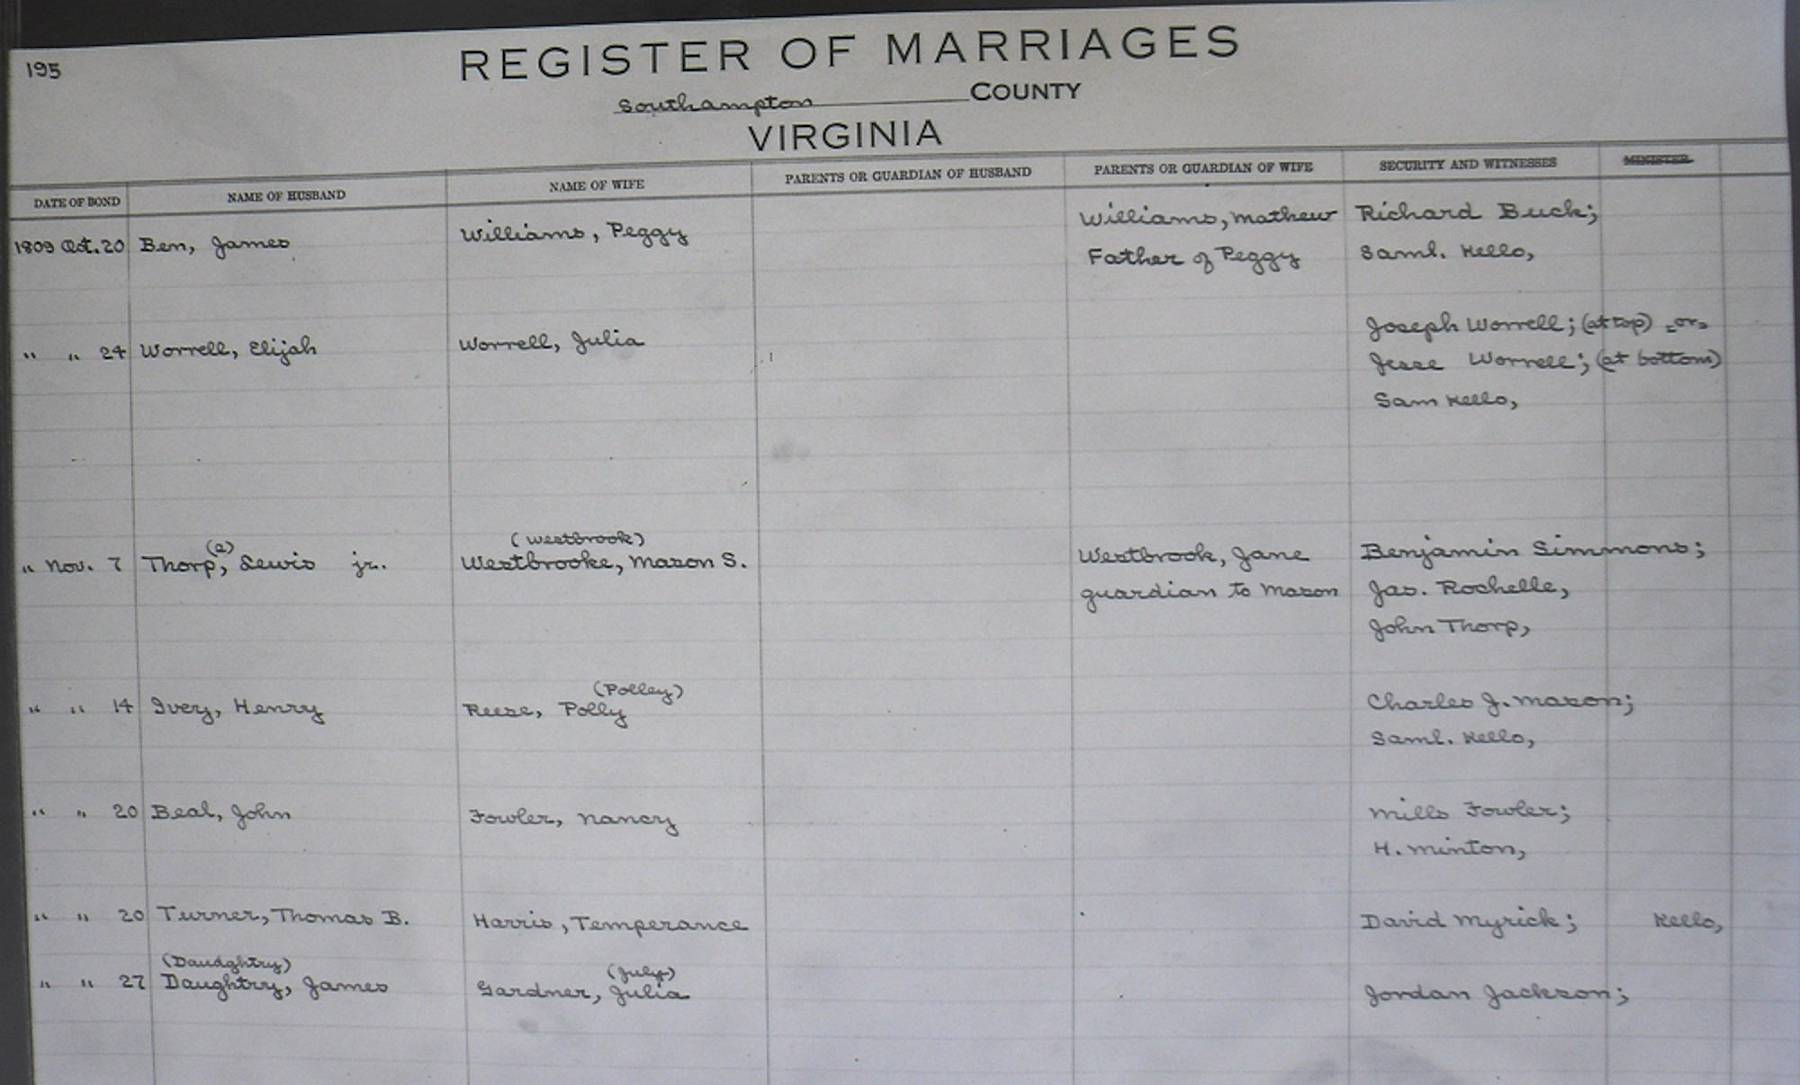 195
REGISTER OF MARRIAGES
Southampton COUNTY
VIRGINIA
DATE OF BOND NAME OF HUSBAND NAME OF WIFE PARENTS OR GUARDIAN OF HUSBAND PARENTS OR GUARDIAN OF WIFE SECURITY AND WITNESSES MINISTER
1809 Oct. 20 Ben, James Williams, Peggy Williams, Mathew Richard Buck;
Father of Peggy Saml. Kello,
Joseph Worrell; (at top) -or-
" " 24 Worrell, Elijah Worrell, Julia Jesse Worrell; (at bottom)
Sam Kello,
(e) (Westbrook)
" Nov. 7 Thorp, Lewis jr. Westbrooke, Mason S. Westbrook, Jane Benjamin Simmons;
guardian to Mason Jas. Rochelle,
John Thorp,
(Polley)
" " 14 Ivey, Henry Reese, Polly Charles J. Mason;
Saml. Kello,
" " 20 Beal, John Fowler, Nancy Mills Fowler;
H. Minton,
" " 20 Turner, Thomas B. Harris, Temperance David Myrick; Kello,
(Daudghtry) (July)
" " 27 Daughtry, James Gardner, Julia Jordan Jackson;